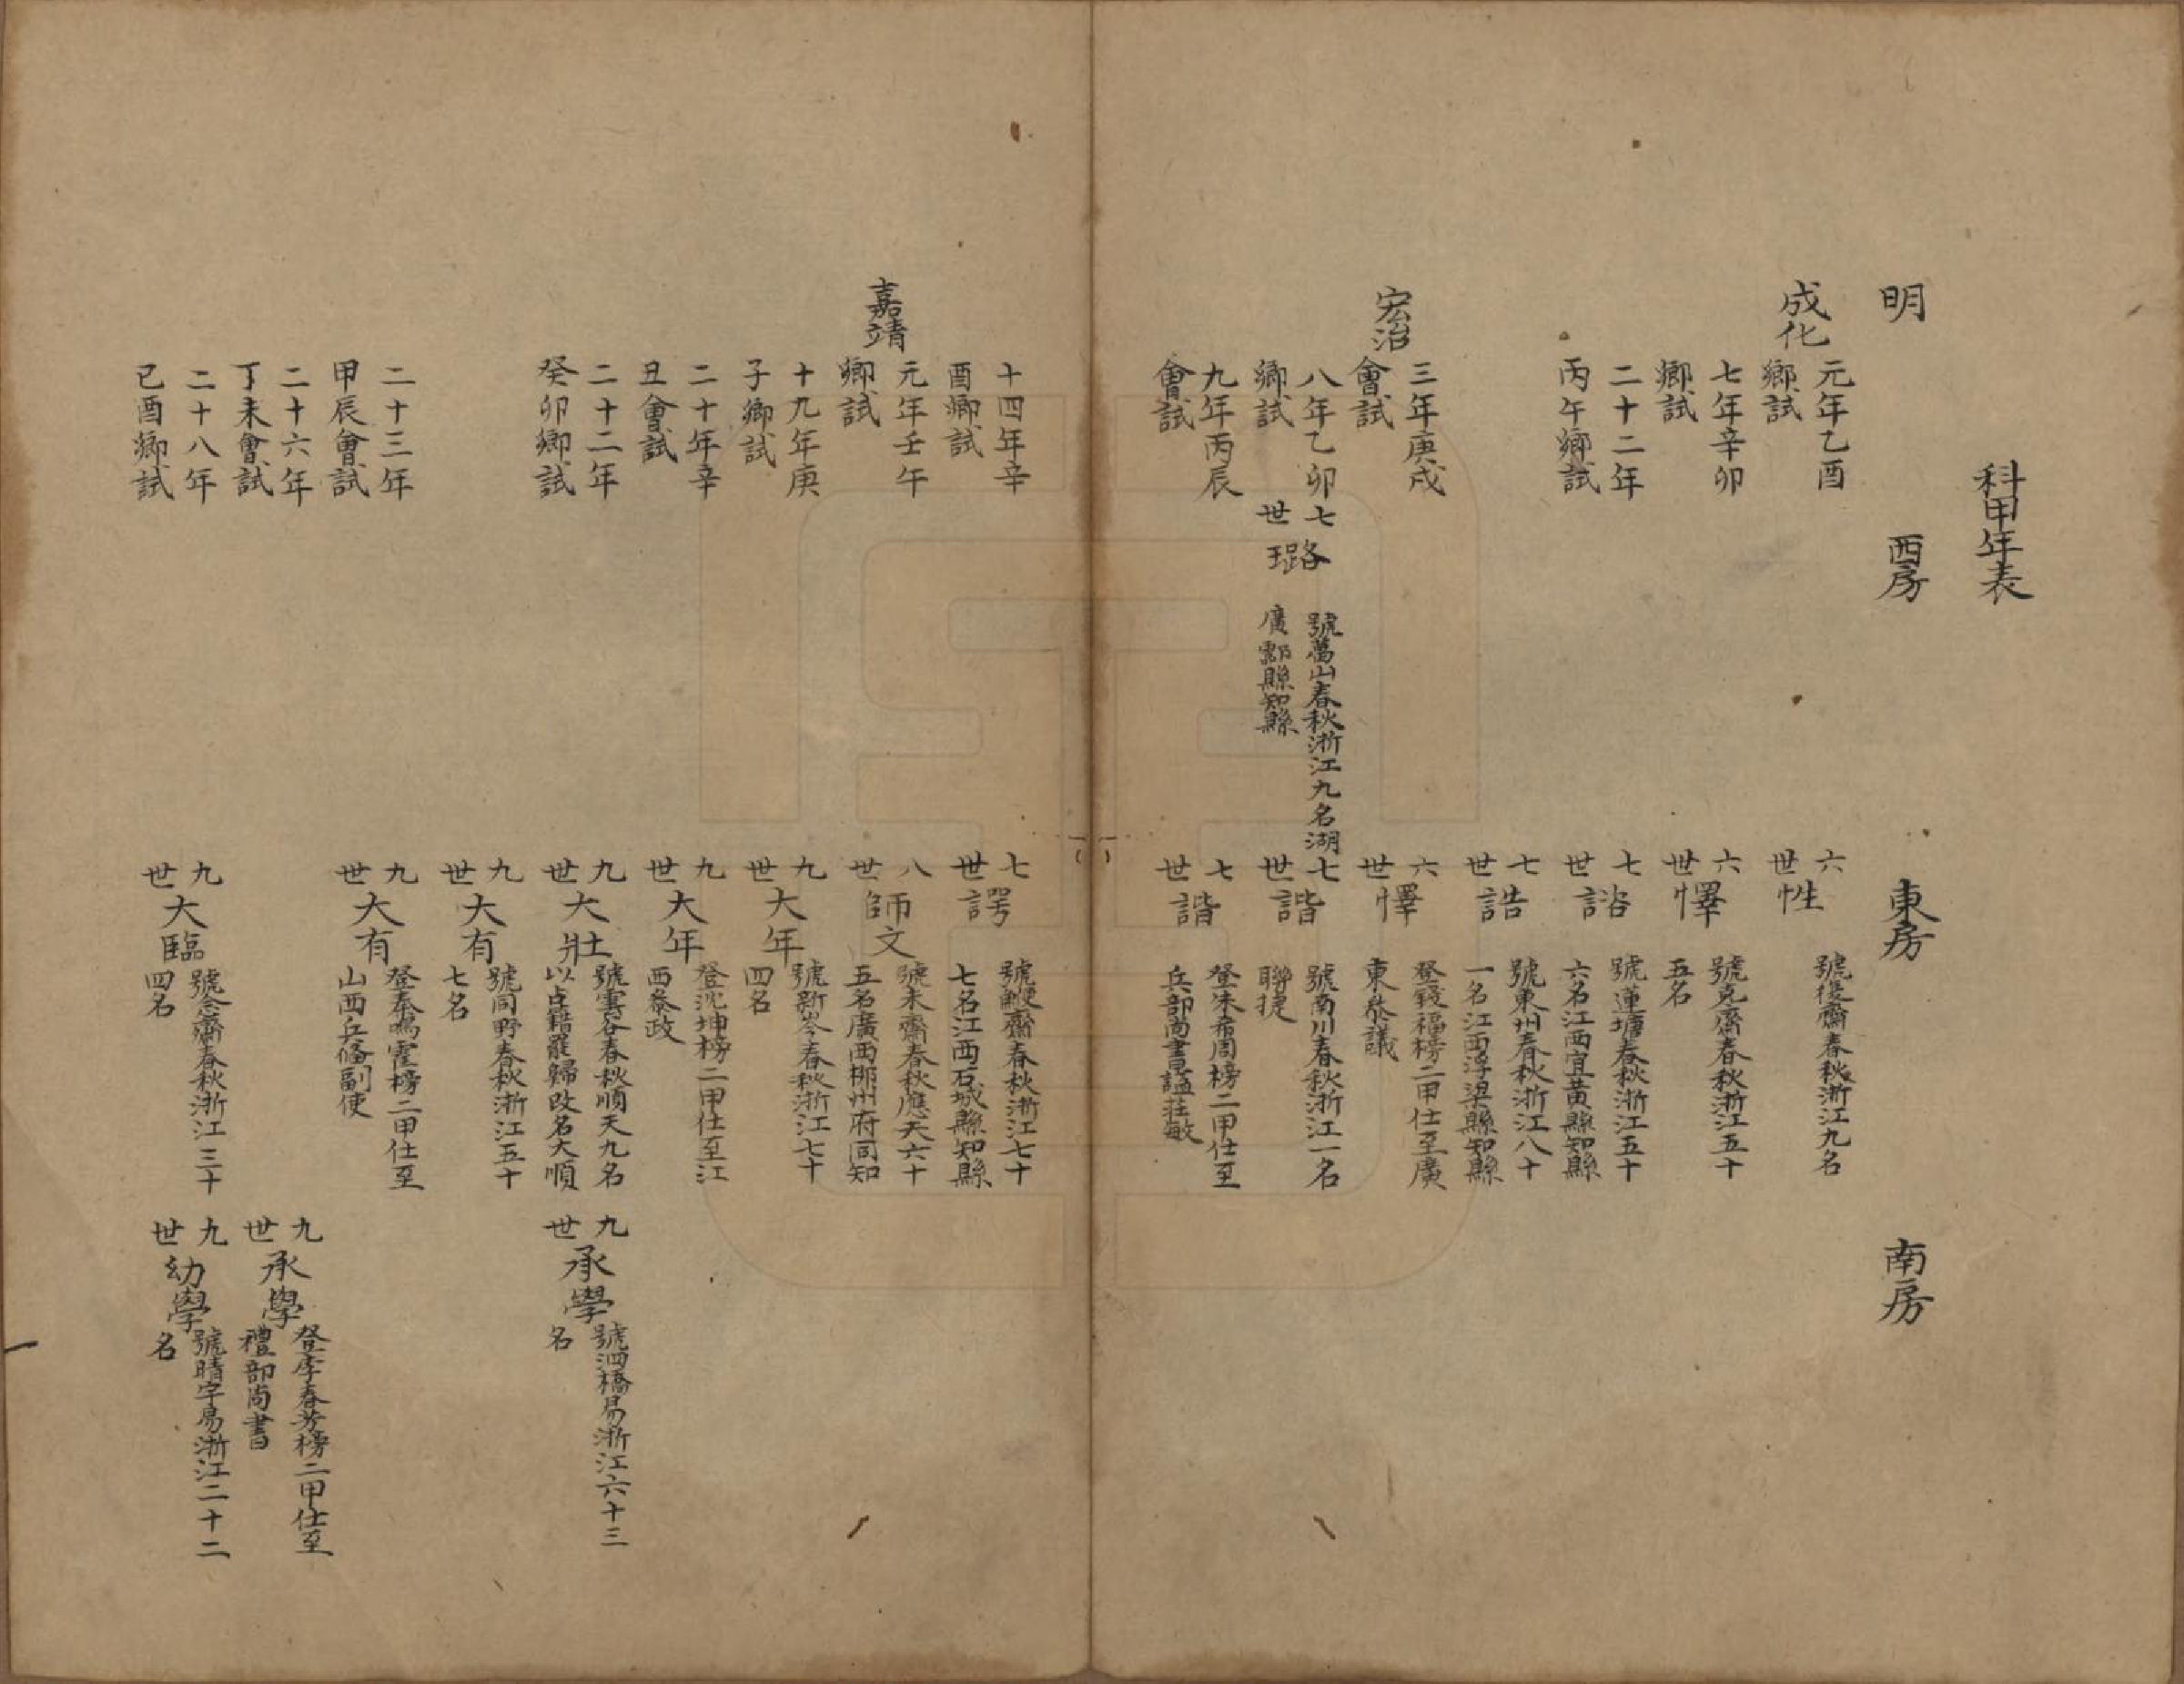 科甲年表
明
西房
東房
南房
成化
元年乙酉
鄉試
六世
性
號復齋春秋浙江九名
七年辛卯
鄉試
六世
懌
號克齋春秋浙江五十
五名
二十二年
丙午鄉試
七世
諮
號蓮塘春秋浙江五十
六名江西宜黃縣知縣
七世
誥
號東州春秋浙江八十
一名江西浮梁縣知縣
宏治
三年庚戌
會試
六世
懌
登錢福榜二甲仕至廣
東叅議
八年乙卯
鄉試
七世
璐
號萬山春秋浙江九名湖
廣酃縣知縣
七世
諧
號南川春秋浙江一名
聯捷
九年丙辰
會試
七世
諧
登朱希周榜二甲仕至
兵部尚書諡莊敏
十四年辛
酉鄉試
七世
諤
號鯁齋春秋浙江七十
七名江西石城縣知縣
嘉靖
元年壬午
鄉試
八世
師文
號未齋春秋應天六十
五名廣西郴州府同知
十九年庚
子鄉試
九世
大年
號新岑春秋浙江七十
四名
二十年辛
丑會試
九世
大年
登沈坤榜二甲仕至江
西叅政
二十二年
癸卯鄉試
九世
大壯
號雲谷春秋順天九名
以占籍罷歸改名大順
九世
承學
號泗橋易浙江六十三
名
九世
大有
號同野春秋浙江五十
七名
二十三年
甲辰會試
九世
大有
登秦鳴雷榜二甲仕至
山西兵偹副使
二十六年
丁未會試
九世
承學
登李春芳榜二甲仕至
禮部尚書
二十八年
己酉鄉試
九世
大臨
號念齋春秋浙江三十
四名
九世
幼學
號晴宇易浙江二十二
名